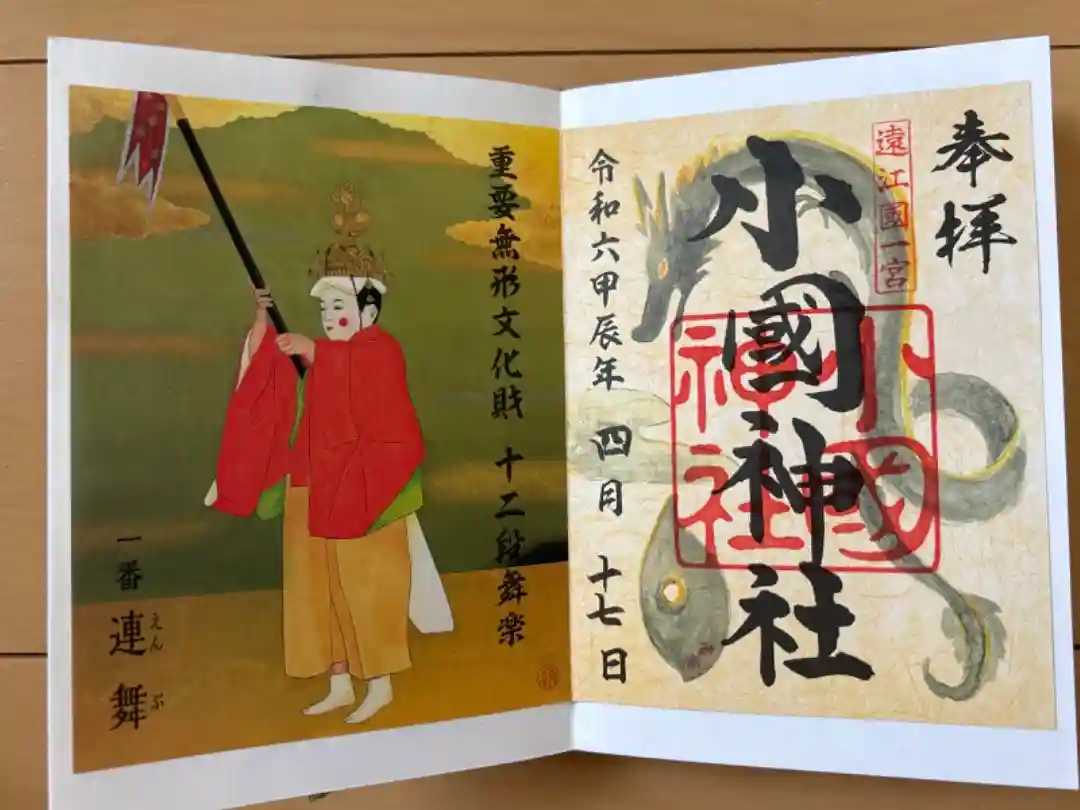 奉拝
遠江國一宮
小國神社
小國神社
令和六甲辰年 四月 十七日
重要無形文化財 十二段舞楽
一番 連舞
えんぶ